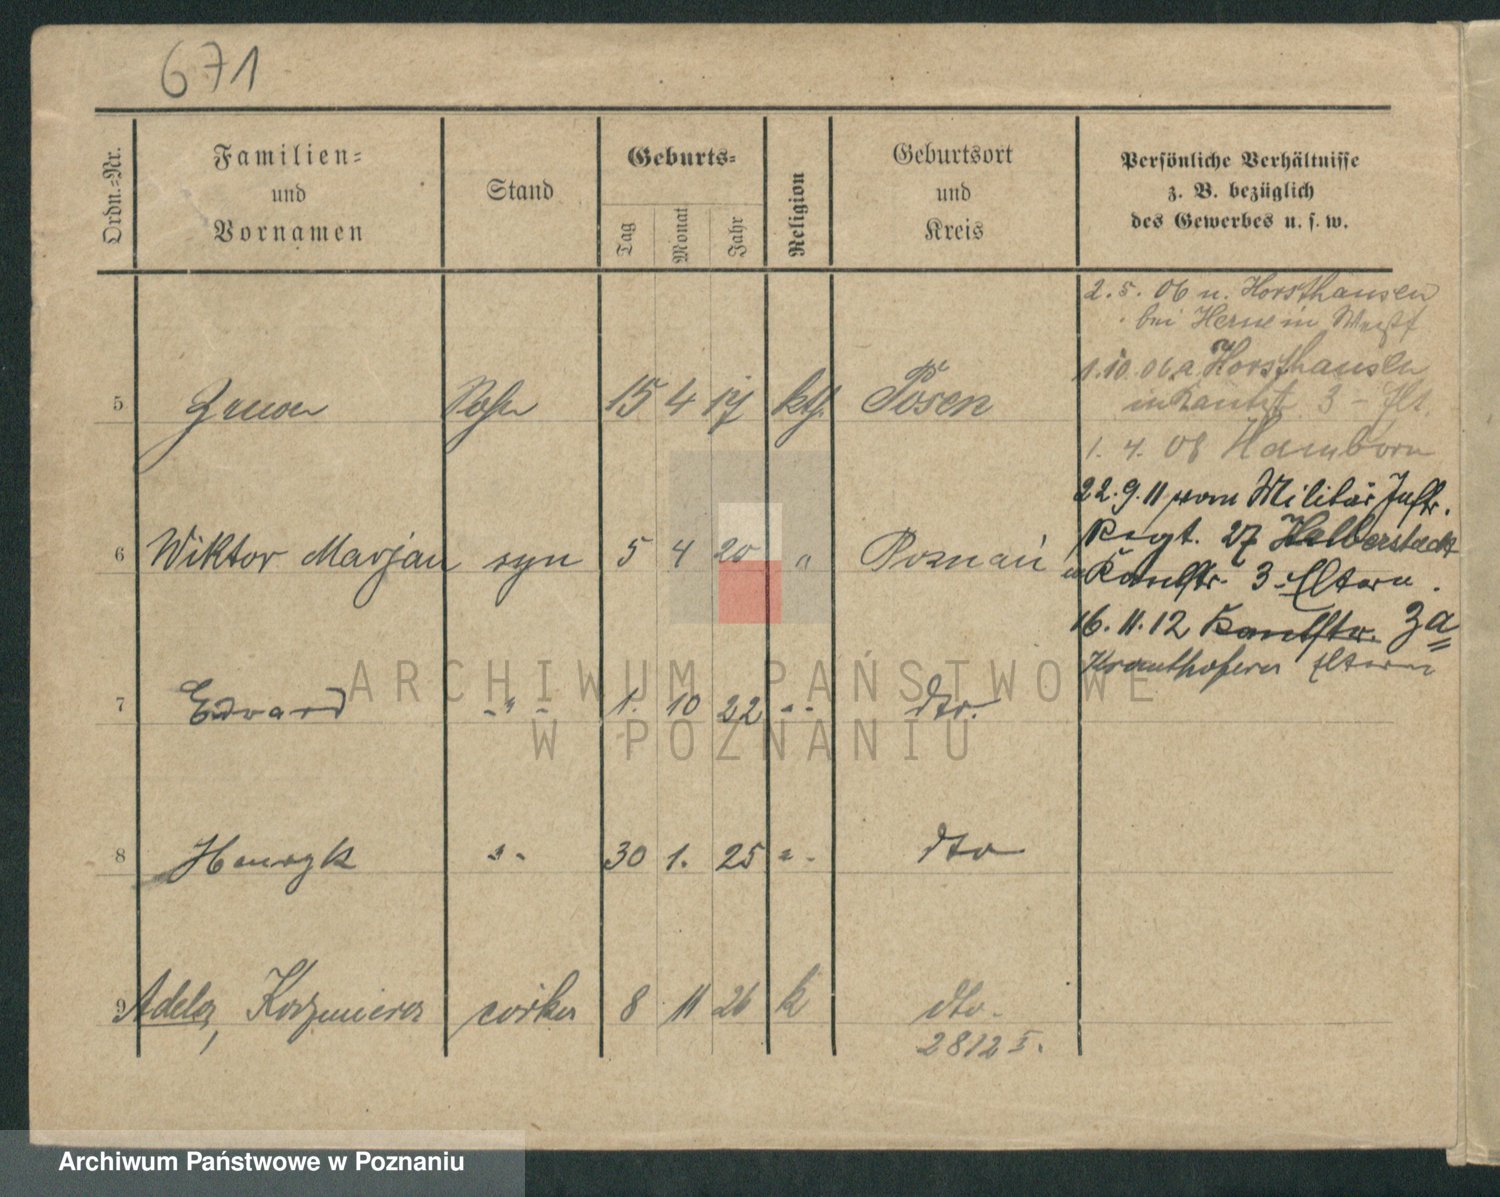 671
Ordn.-Nr.
Familien-
und
Vornamen
Stand
Geburts-
Tag
Monat
Jahr
Religion
Geburtsort
und
Kreis
Persönliche Verhältnisse
z. B. bezüglich
des Gewerbes u. s. w.
2. 5. 06 n. Horsthausen
bei Herne in Westf
1. 10. 06 a. Horsthausen
3 - Elt.
1. 4. 08 Hamborn
5 Zenon Sohn 15 4 17 kth. Posen
22. 9. 11 vom Militär Inftr.
Regt. 27 Halberstadt
n Kantstr. 3 - Eltern.
6 Wiktor Marjan syn 5 4 20 " Poznań
16. 11. 12 Kantstr. 3a
Kranthofera Eltern
7 Edward -"- 1. 10 22 -"- dto.
8 Henryk -"- 30 1. 25 -"- dto
9 Adela, Kazimiera córka 8 11 26 k dto.
2812 I.
ARCHIWUM PAŃSTWOWE
W POZNANIU
Archiwum Państwowe w Poznaniu